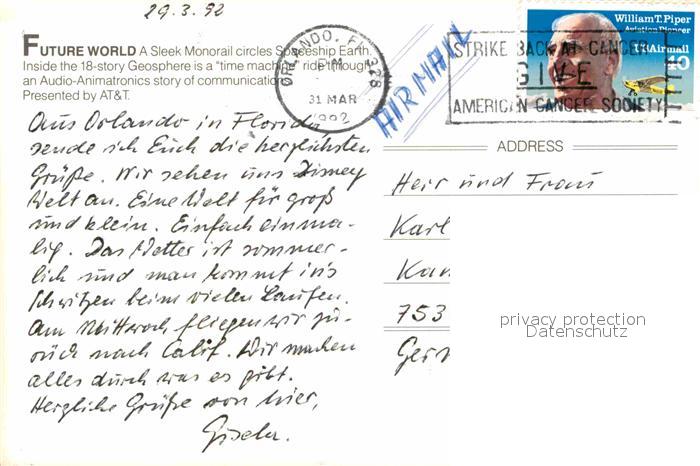 29.3.92
FUTURE WORLD A Sleek Monorail circles Spaceship Earth.
Inside the 18-story Geosphere is a "time machine" ride through
an Audio-Animatronics story of communication.
Presented by AT&T.
ORLANDO, FL 328
PM
31 MAR
1992
AIRMAIL
William T. Piper
Aviation Pioneer
USAirmail
40
STRIKE BACK AT CANCER
GIVE
AMERICAN CANCER SOCIETY
Aus Orlando in Florida
sende ich Euch die herzlichsten
Grüße. Wir sehen uns Disney
Welt an. Eine Welt für groß
und klein. Einfach einma-
lig. Das Wetter ist sommer-
lich und man kommt ins
Schwitzen beim vielen Laufen.
Am Mittwoch fliegen wir zu-
rück nach Calif. Wir machen
alles durch was es gibt.
Herzliche Grüße von hier,
Gisela.
ADDRESS
Herr und Frau
Karl
Kan
753
Ger
privacy protection
Datenschutz